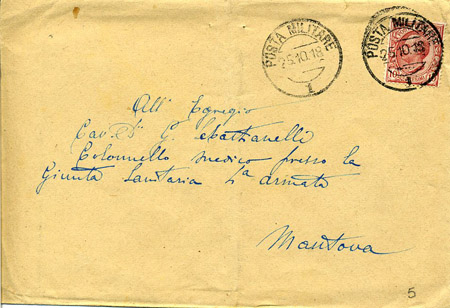 POSTA MILITARE
25.10.18
1
POSTA MILITARE
25.10.18
1
All' Egregio
Cav.
Colonnello medico presso la
Giunta Sanitaria 4a armata
Mantova
5